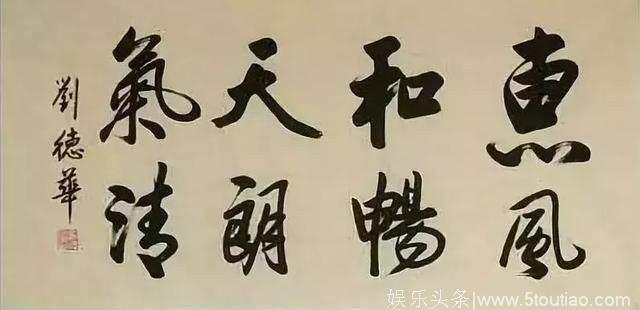 惠風
和暢
天朗
氣清
劉德華
娱乐头条|www.5toutiao.com